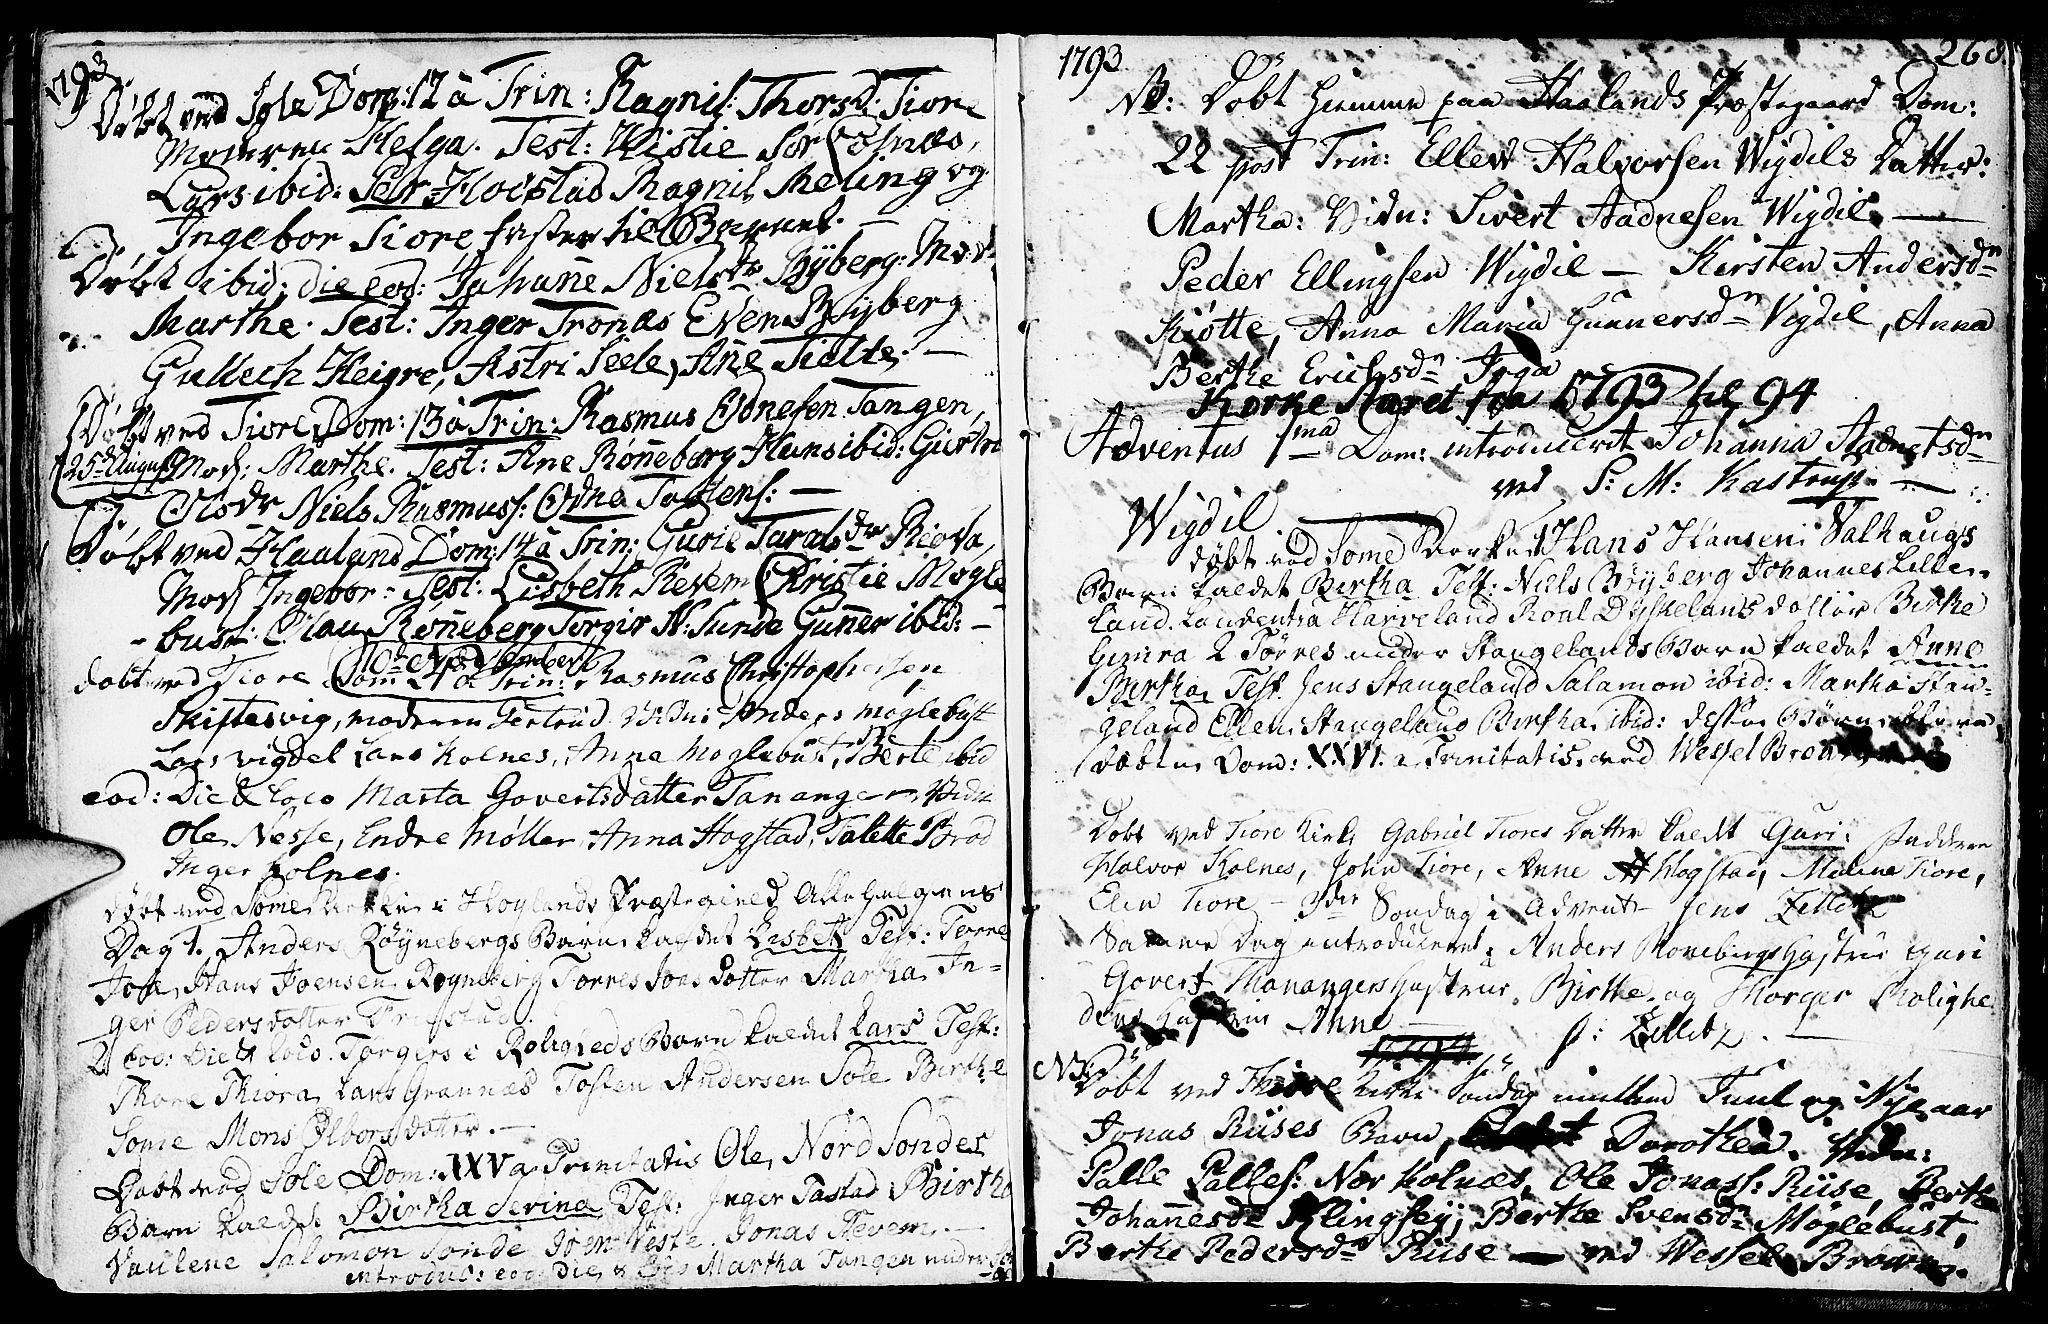 1793
Døbt ved Sole Dom: 12 a Trin: Ragnil: Thorsd: Tiore
Moderen Helga. Test: Kistie Sør Colnæs,
Lars ibid: Per Hogstad Ragnil Meling og
Ingebor Tiore faster til Barnet. —
Døbt ibid: die eod: Johañe Nielsdr Byberg: Mod:
Marthe. Test: Inger Tronæs Even Byberg
Gullech Heigre, Astri Seele, Añe Tielte. —
Døbt ved Tiore Dom: 13 a Trin: Rasmus Ednesen Tangen,
25de August Mod: Marthe. Test: Ane Røñeberg Hans ibid: Gurtru
Niels Rasmuss: Edne
Døbt ved Haaland Dom: 14 a Trin: Gurie Taralsdtr
Mod Ingebor = Test: Lisbeth Revem Christie Møgle
bust: Olau Røñeberg Torgir N: Sunde Guñer ibid: —
10de November
døbt ved Tiore Dom 24 a Trin: Rasmus Christophersen
Skiftesvig, moderen Gertrud. Vidn: Anders møglebust
Lars vigdel Lars Kolnes, Anna Moglebust, Berte ibid
eod: Die & loco Marta Govertsdatter Tananger, Vidn
Ole Nesse, Endre Møller, Anna Hogstad, Talette Brod
Inger Kolnes.
døbt ved Some Kirke i Høylands Præstegield Allehelgens
Dag 1. Anders Røynebergs Barn kaldet Lisbet Test: Torre
Joa, Hans Joensen Røyneberg Torres Joas dotter Martha In-
ger Pedersdotter
2 eod: Die & loco. Torgers Barn kaldet Lars Test:
Thore Thiora, Lars Grannæs Tosten Andersen Sole Birthe
Some Mons Olborsdotter. —
Døbt ved Sole Dom: XXV a Trinitatis Ole Nord Sondes
Barn kaldt Birtha Serina Test: Inger Tastad Birtha
Vaulene Salomon Sonde Joen Jonas Revem. —
introdus: eod: Die & Loco Martha Tangen
1793
268
NB: Døbt hiemme paa Haalands Præstegaard Dom:
22 post Trin: Ellew Halvorsen Wigdils Datter:
Martha: Vidn: Siwert Aadnesen Wigdil —
Peder Ellingsen Wigdil — Kirsten Andersdn
Kiøtte, Anna Maria Gunnersdn Vigdil, Anna
Berthe Erichsdn
Korke Aaret fra 1793 til 94
Adventus 1ma Dom: introducerit Johanna Aadnetsdn
Wigdil ved S: M: Kastrup —
døbt ved Some Kirke Hans Hansen Salhaugs
Barn kaldet Birtha Test: Niels Bøyberg Johannes Lille-
land. Laurentsa Harveland Roal Dysjelans dotter Birthe
Gimra 2 Torres Stangelands Barn kaldet Anne
Birtha Test. Jens Stangeland Salamon ibid: Martha Stan-
geland Ellen Stangeland Birtha ibid: desse Børn
døbte Dom: XXVI. a Trinitatis ved Wessel Brown
Døbt ved Tiore Kirke Gabriel Tiores Datter kaldt Guri: Faddere
Halvor Kolnes, John Tiore, Anne Hogstad, Malene Tiore,
Elen Tiore — 3die Søndag i Advent — Jens Zetlitz
Samme Dag introduceret: Anders Ronebergs Hustrue Guri
Govert Thanangers Hustrue Birthe og Thorger Rolighe
dens Hustrue Anne — J: Zetlitz. —
NB Døbt ved Thiore Kirke Søndag mellem Juul og Nytaar
Jonas Riises Barn, Dorothea. Vidn:
Palle Palles: Nor Kolnæs, Ole Jonass: Riise, Berthe
Johañesdr Berthe Svensdr Møglebust,
Berthe Pedersdr Riise — ved Wessel Brown.